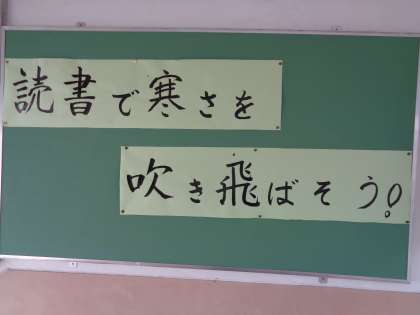 読書で寒さを
吹き飛ばそう!